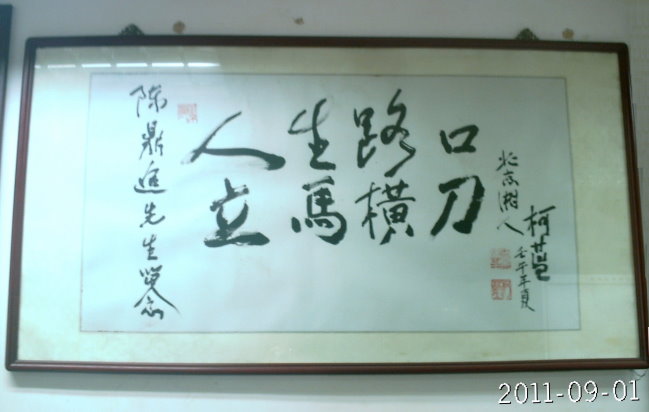 陈鼎進先生留念
人生路口
立馬橫刀
北京湘人
柯蓝
壬午年夏
2011-09-01